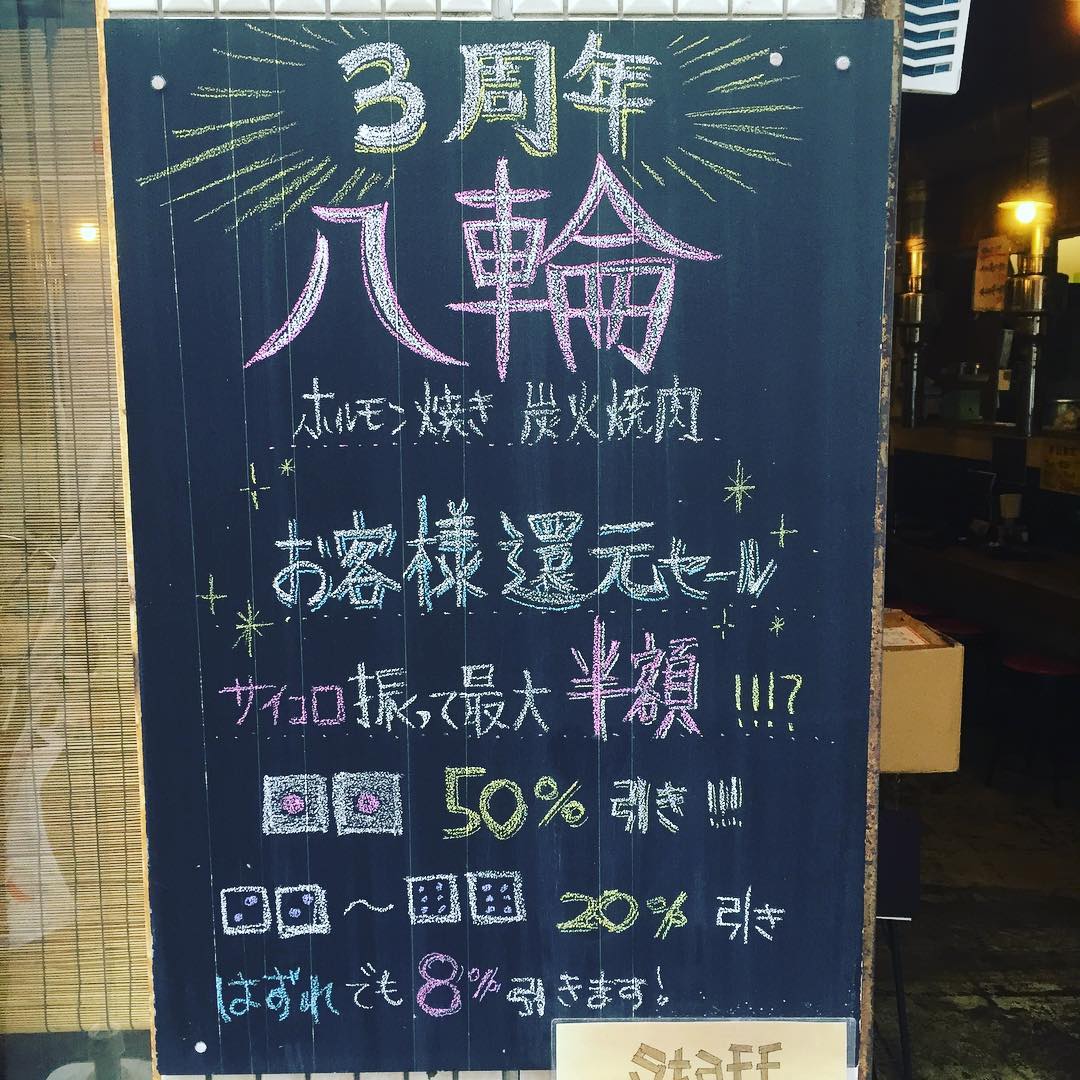 3周年
八輪
ホルモン焼き 炭火焼肉
お客様還元セール
サイコロ振って最大半額!!!?
50%引き!!!!
〜 20%引き
はずれでも8%引きます!
Staff